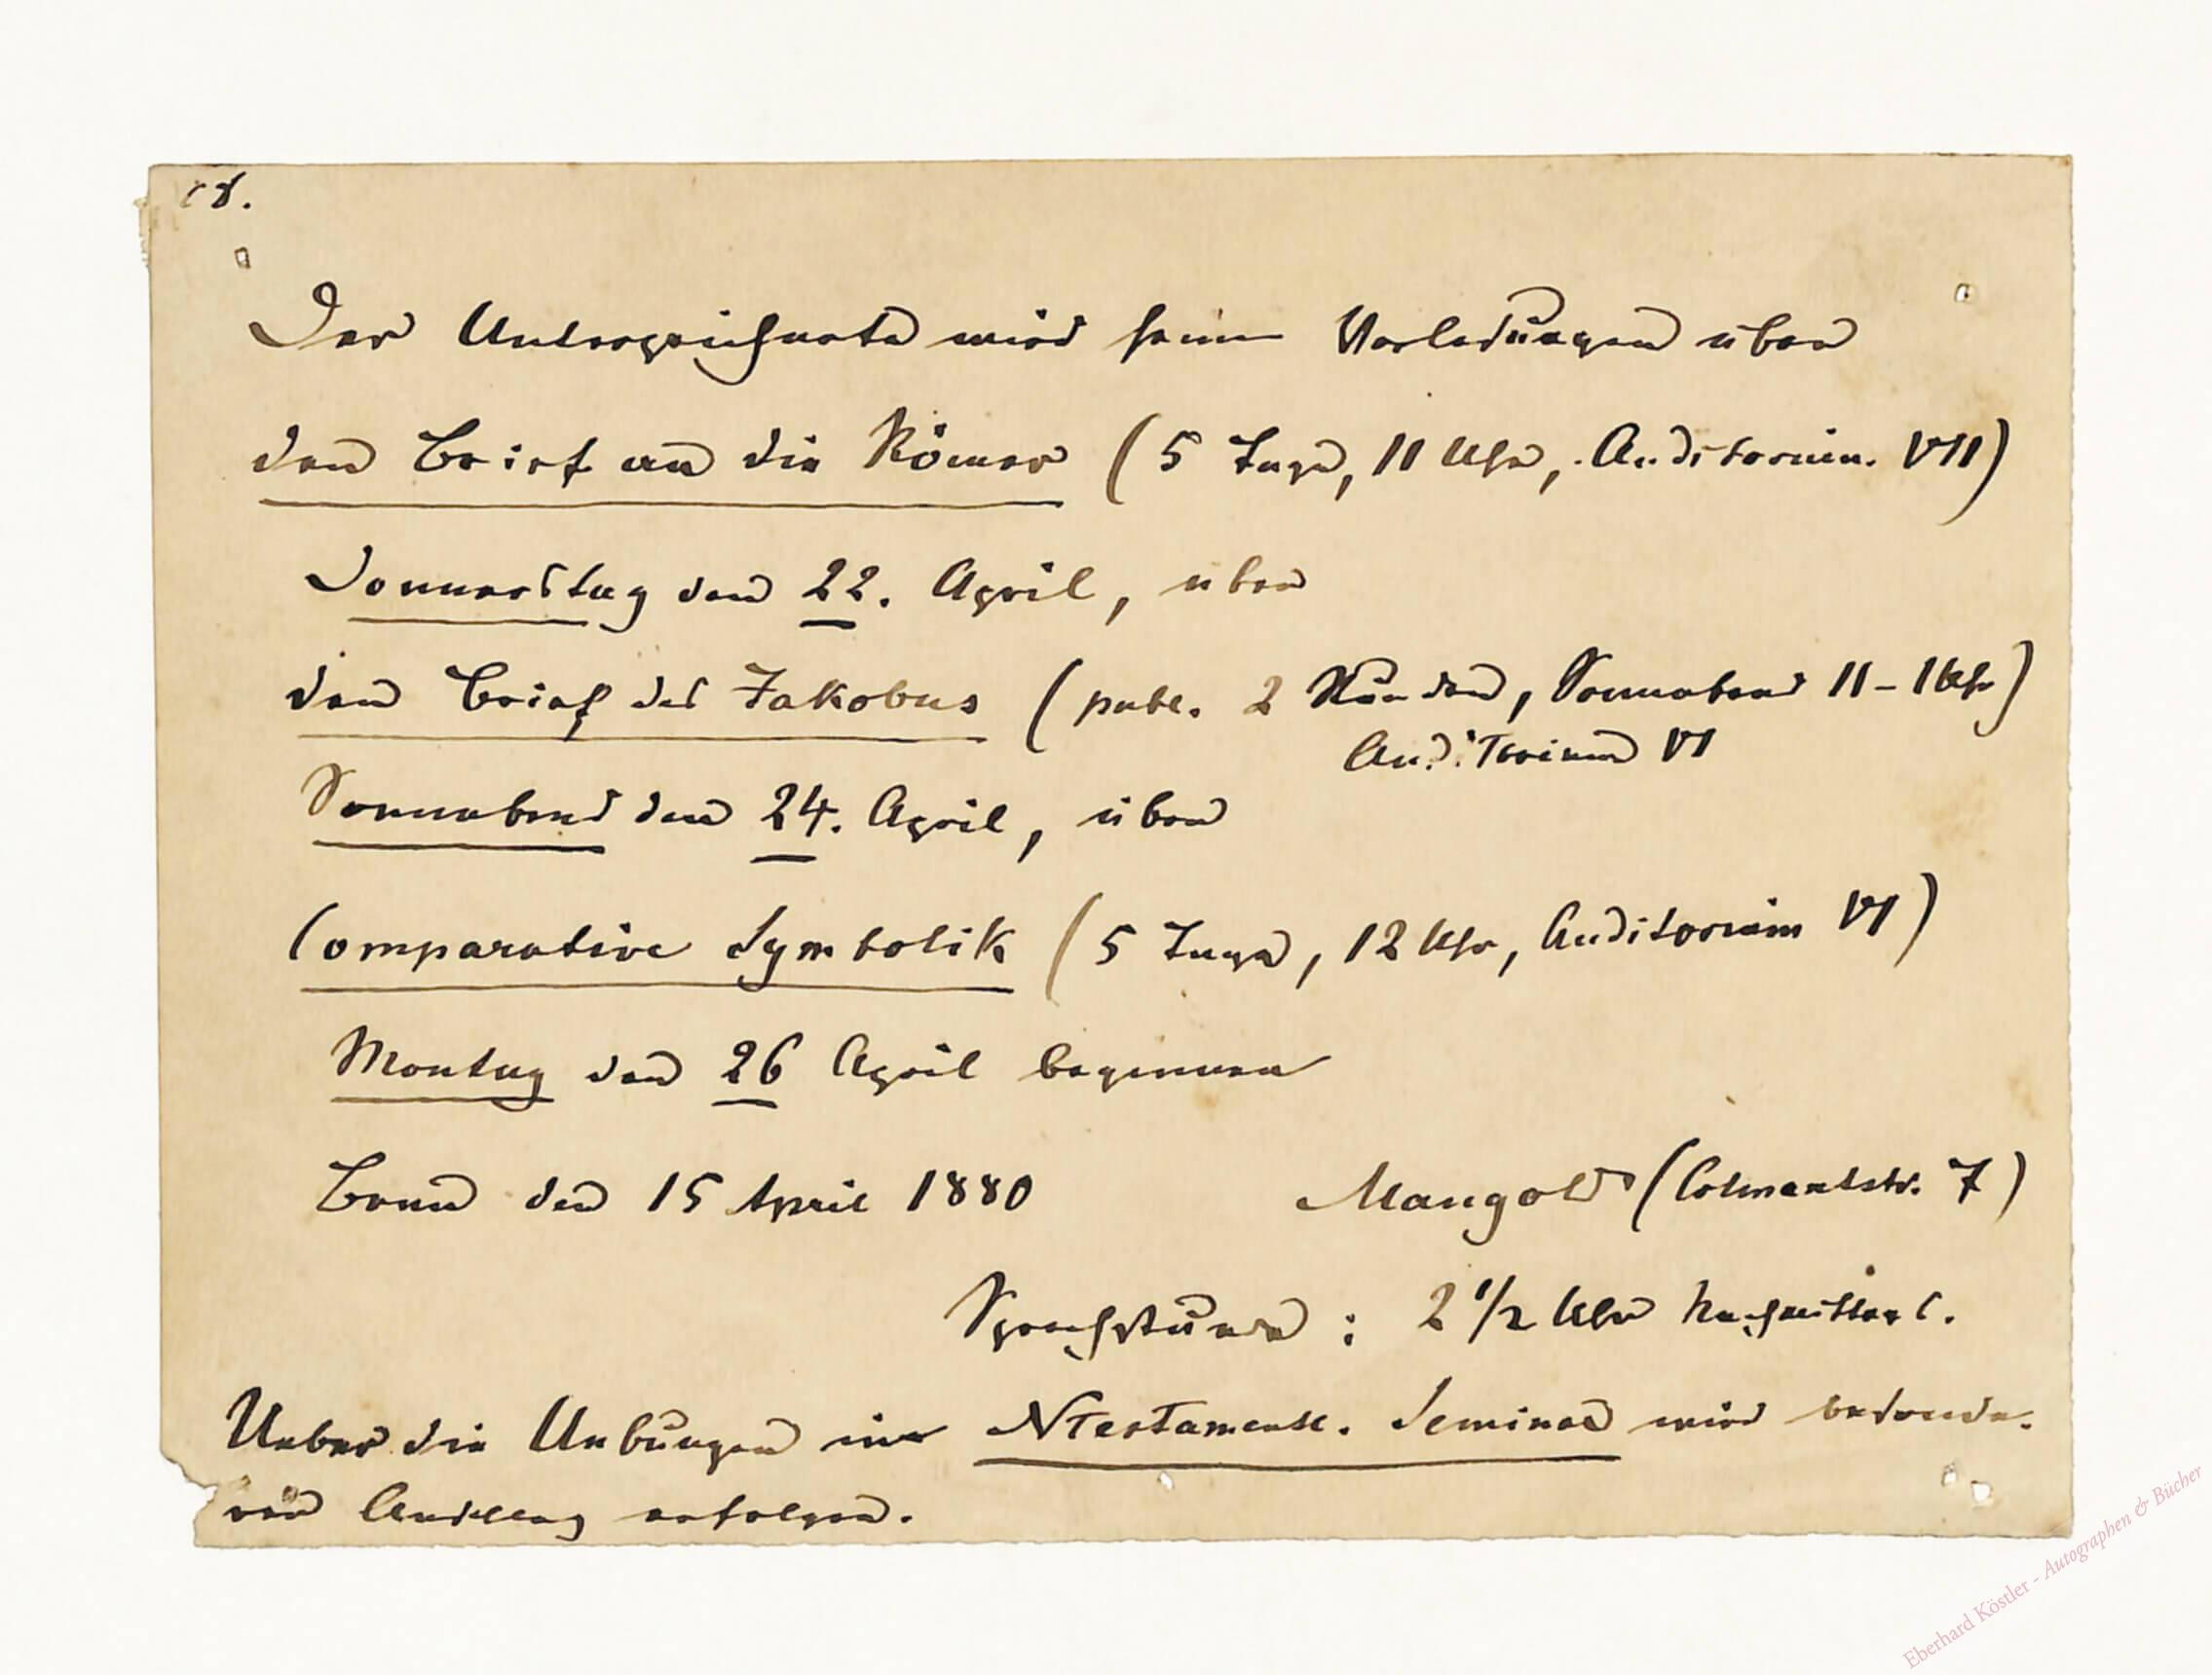 18.
Der Unterzeichnete wird seine Vorlesungen über
den Brief an die Römer (5 Tage, 11 Uhr, Auditorium VII)
Donnerstag den 22. April, über
den Brief des Jakobus (publ. 2 Stunden, Sonnabend 11-1 Uhr)
Auditorium VI
Sonnabend den 24. April, über
Comparative Symbolik (5 Tage, 12 Uhr, Auditorium VI)
Montag den 26 April beginnen
Bonn den 15 April 1880 Mangold (Colmantstr. 7)
Sprechstunde: 2 1/2 Uhr Nachmittags.
Ueber die Uebungen im NTestamentl. Seminar wird besonde-
rer Anschlag erfolgen.
Eberhard Köstler - Autographen & Bücher